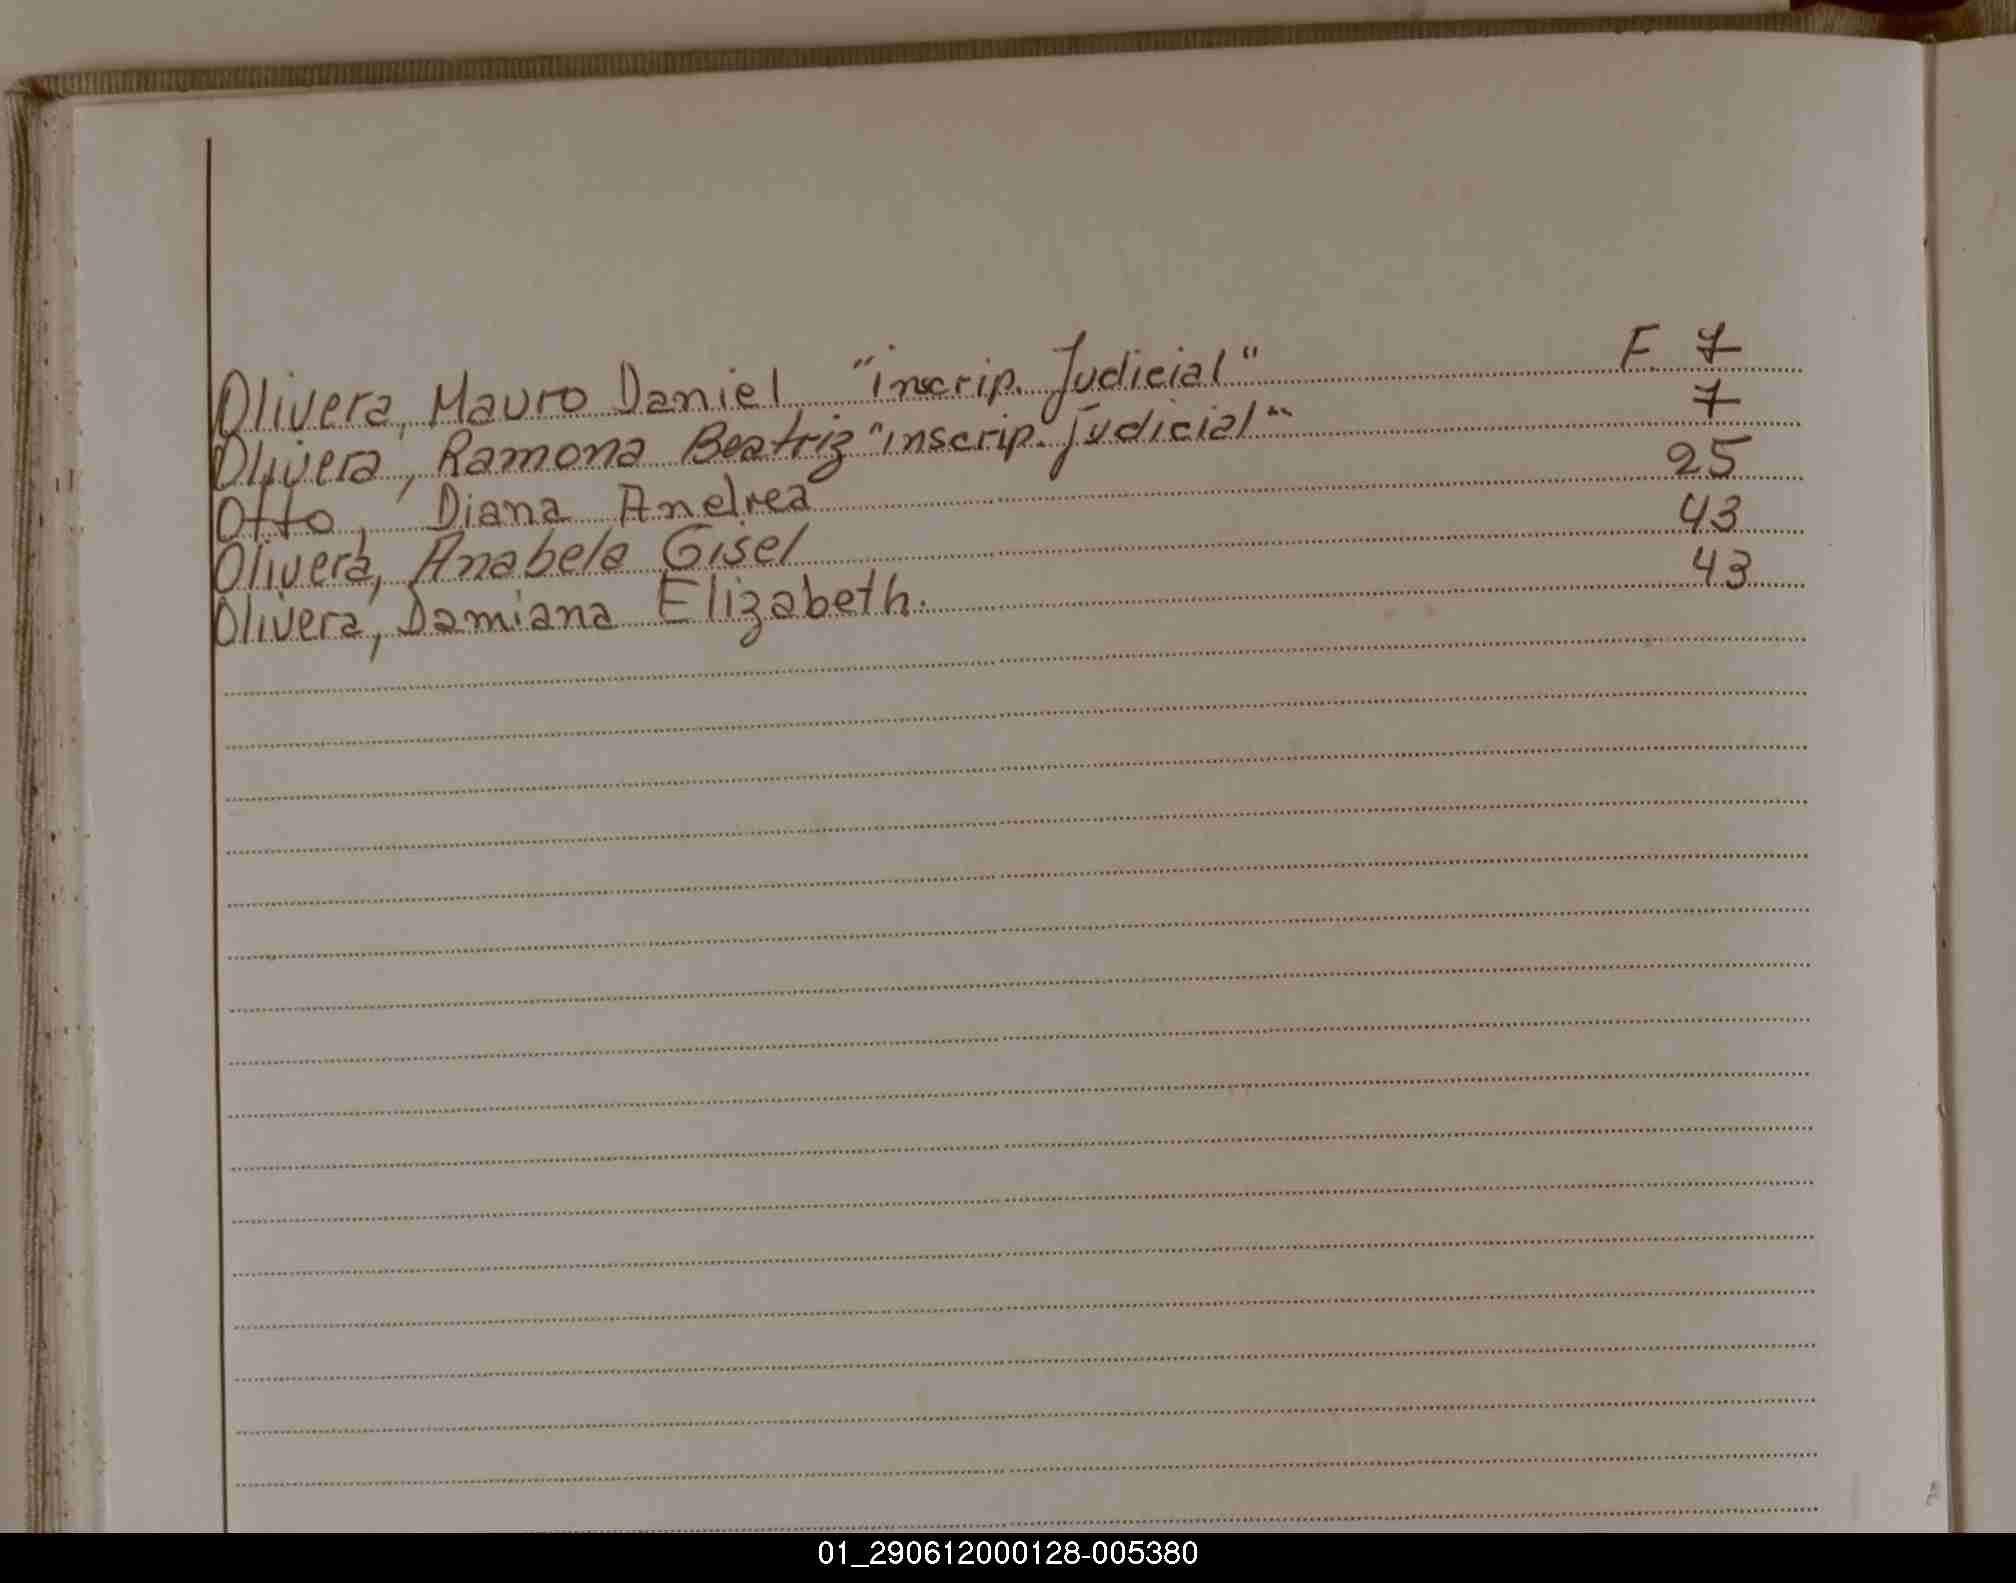 Olivera, Mauro Daniel "inscrip. Judicial" F. 7
Olivera, Ramona Beatriz "inscrip. Judicial" 7
Otto, Diana Andrea 25
Olivera, Anabela Gisel 43
Olivera, Damiana Elizabeth. 43
01_290612000128-005380